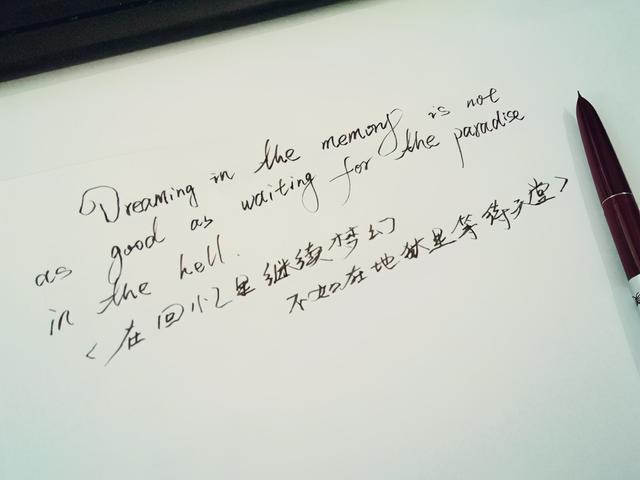 Dreaming in the memory is not
as good as waiting for the paradise
in the hell.
<在回忆里继续梦幻
不如在地狱里等待天堂>